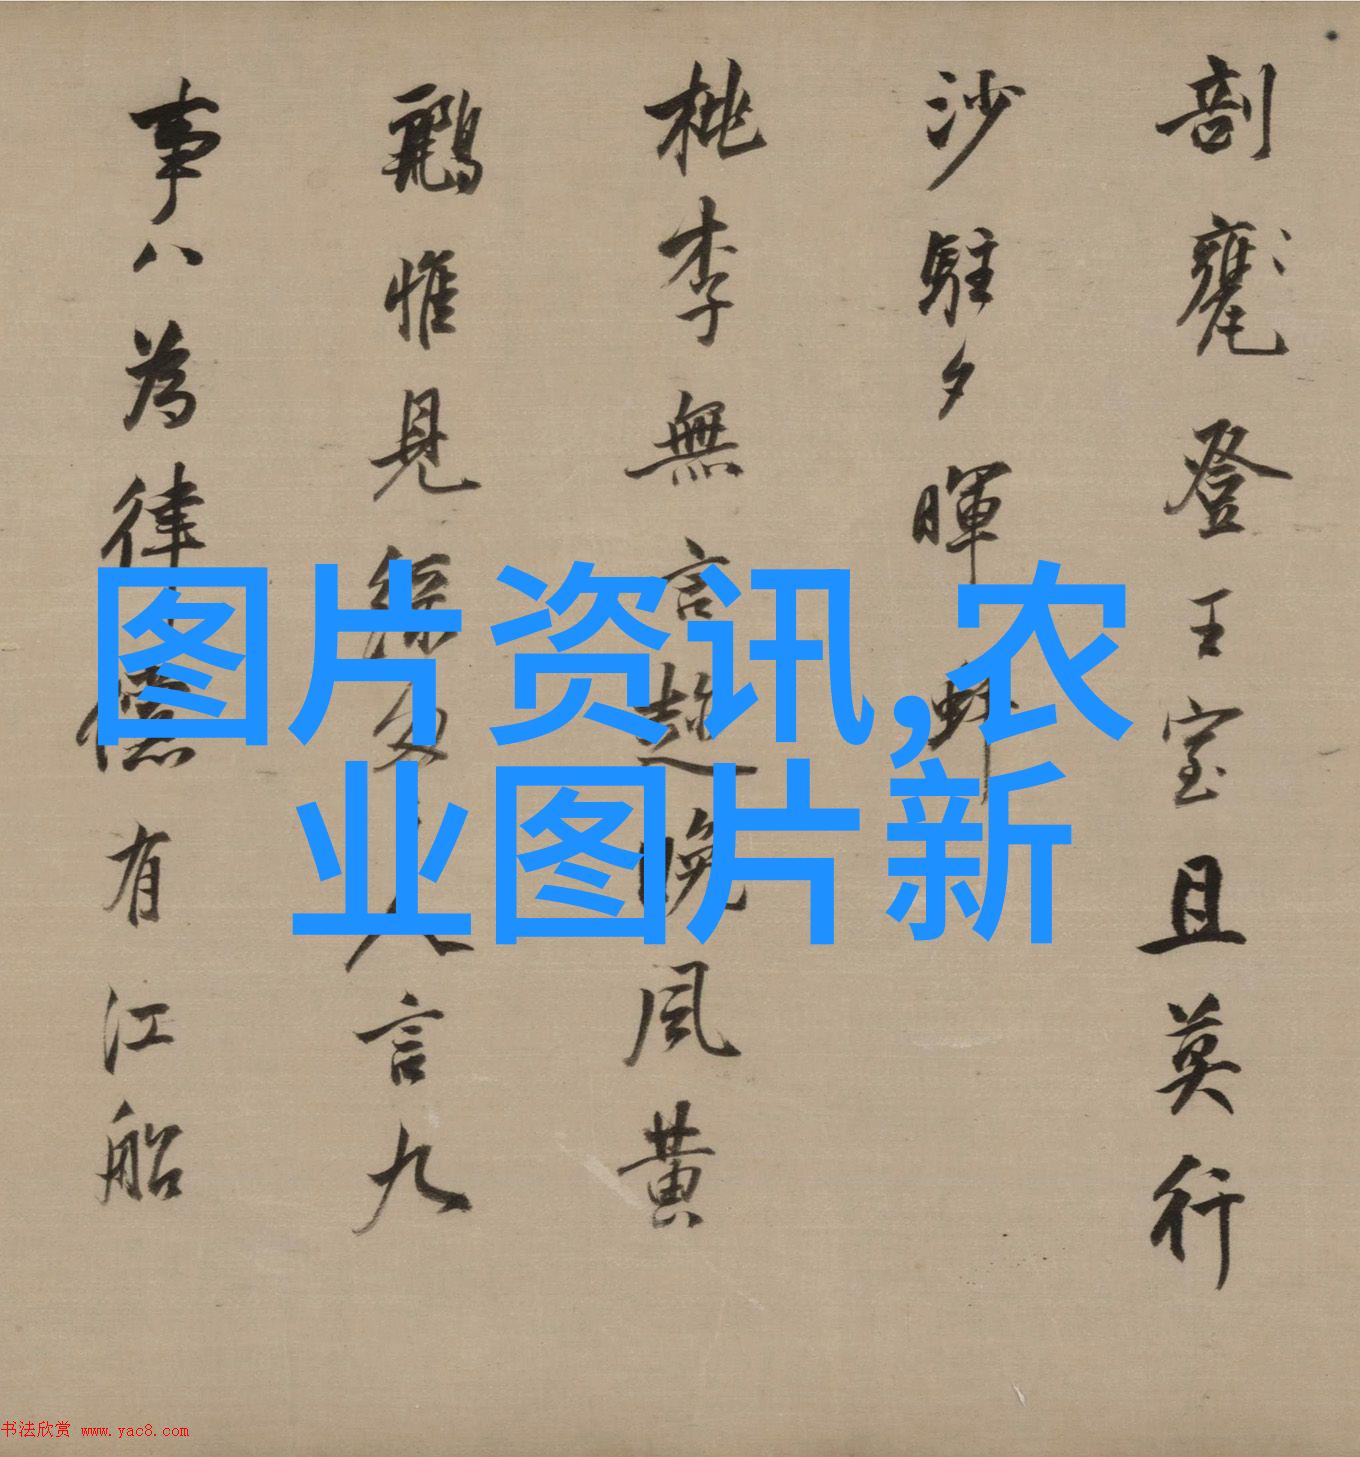 剖甕登王室且莫行
沙駐夕暉蚌
桃李無言晚風黄
鸝惟見綠人言九
事八為律儻有江船
图片资讯,农
业图片新
书法欣赏 www.yac8.com